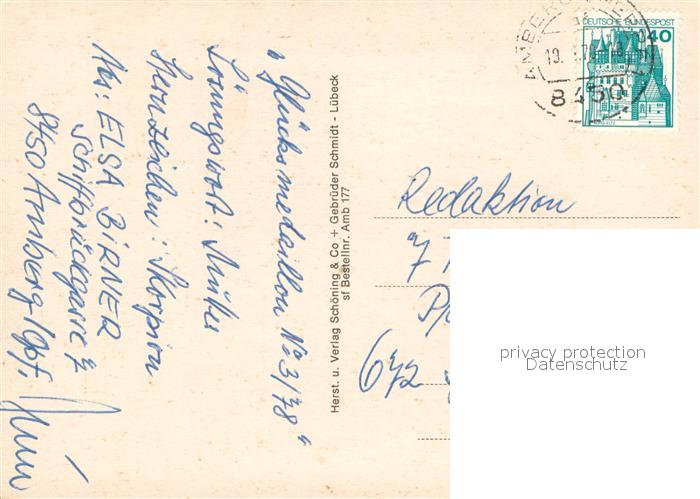 „Glücksmedaillon No 3/78“
Lösungswort: Stütze
Sternzeichen: Skorpion
Abs: ELSA BIRNER
Schiffbrückgasse 7
8450 Amberg/Opf.
Herst. u. Verlag Schöning & Co + Gebrüder Schmidt - Lübeck
sf Bestellnr. Amb 177
DEUTSCHE BUNDESPOST
40
AMBERG
8450
Redaktion
7
672
privacy protection
Datenschutz